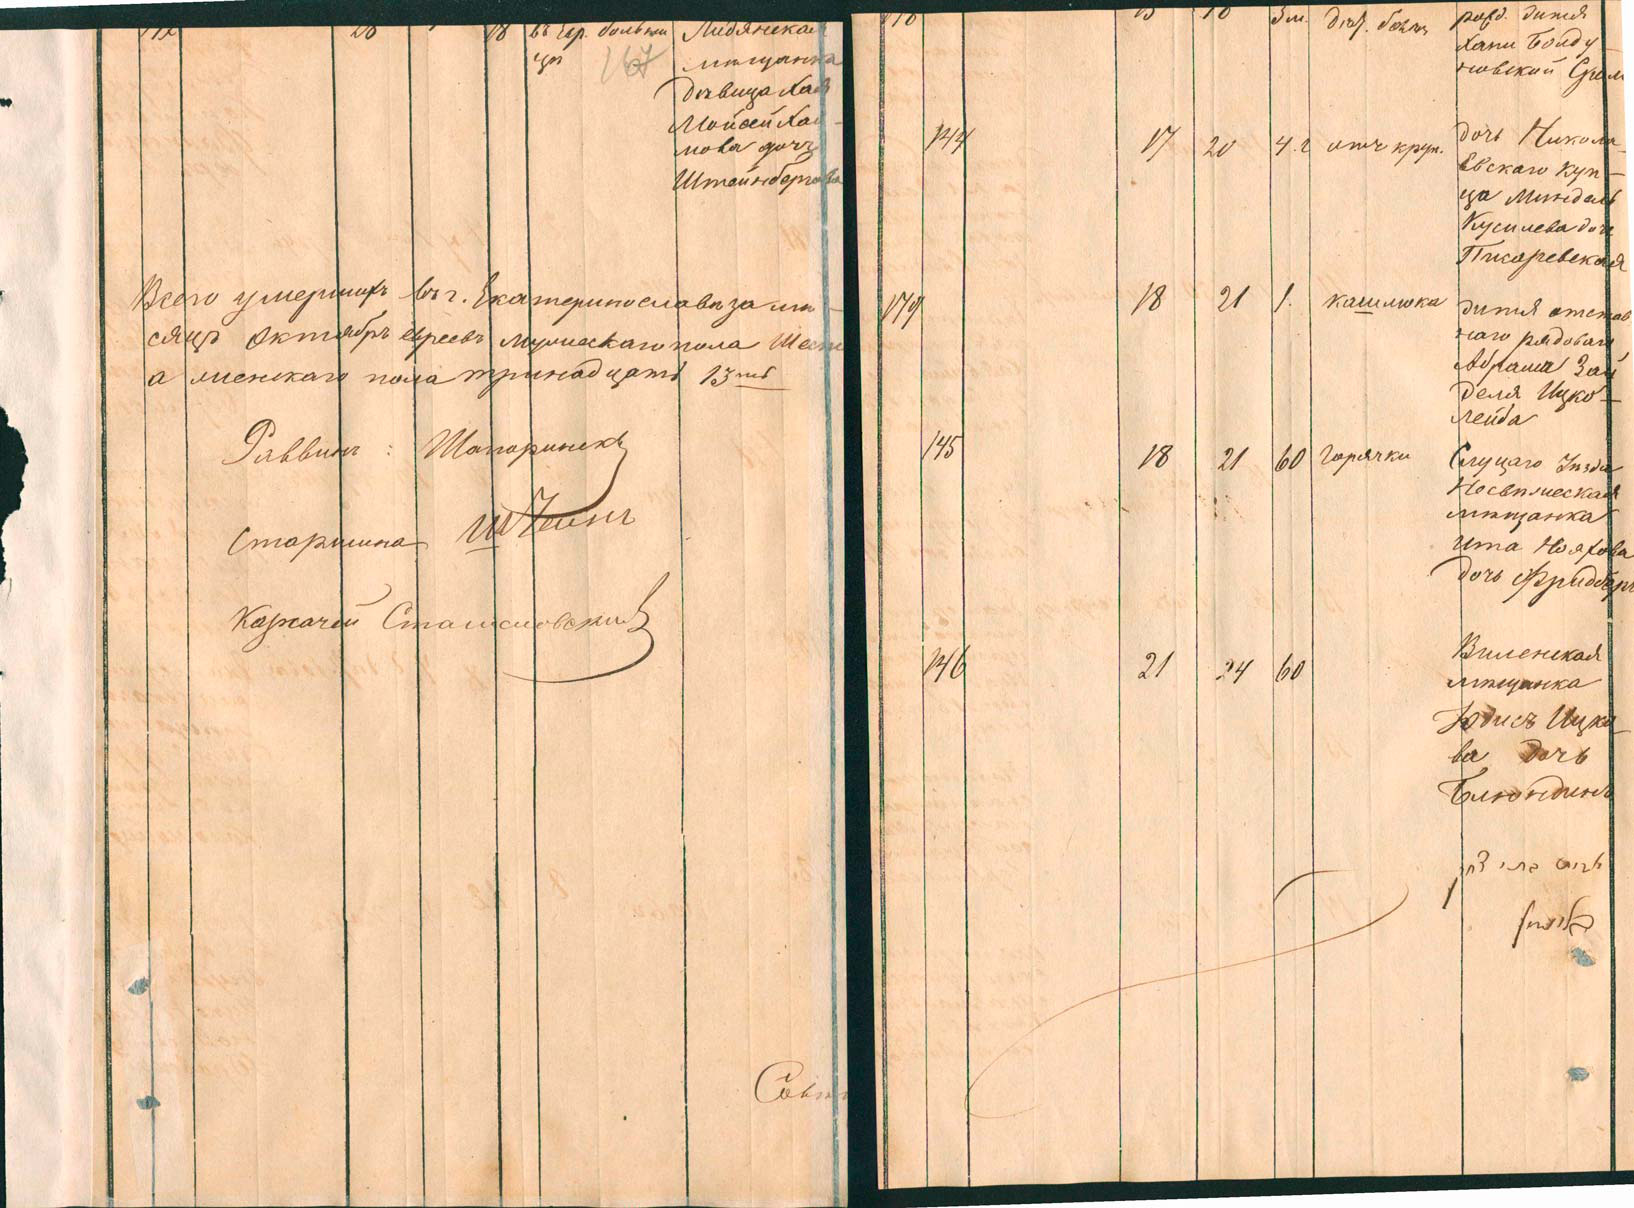 28
18
въ Евр. больни
цѣ
167
Лидянская
мѣщанка
дѣвица Хая
Мойсей Хаи-
мова дочь
Штейнбергова
Всего умершихъ въ г. Екатеринославѣ за мѣ-
сяцъ Октябрь евреевъ мужескаго пола Шесть
а женскаго пола тринадцать 13ть
Раввинъ: Шапоринскъ
Старшина Штейнъ
Казначей Сташеловскій
3 м.
рожд. дитя
Хани Болду-
144
17
20
4. г
отъ круп.
дочь Никола-
евскаго куп-
ца Миндель
Кусилева дочь
Писаревская
179
18
21
1.
кашлюка
дитя отстав
наго рядоваго
Абрама Зай
деля Ицко-
Лейба
145
18
21
60
горячки
Слуцкаго Уѣзда
Несвижеская
мѣщанка
Ита Нояхова
дочь Фридберг
146
21
24
60
Виленская
мѣщанка
Юдисъ Ицко-
ва дочь
Блюндинъ